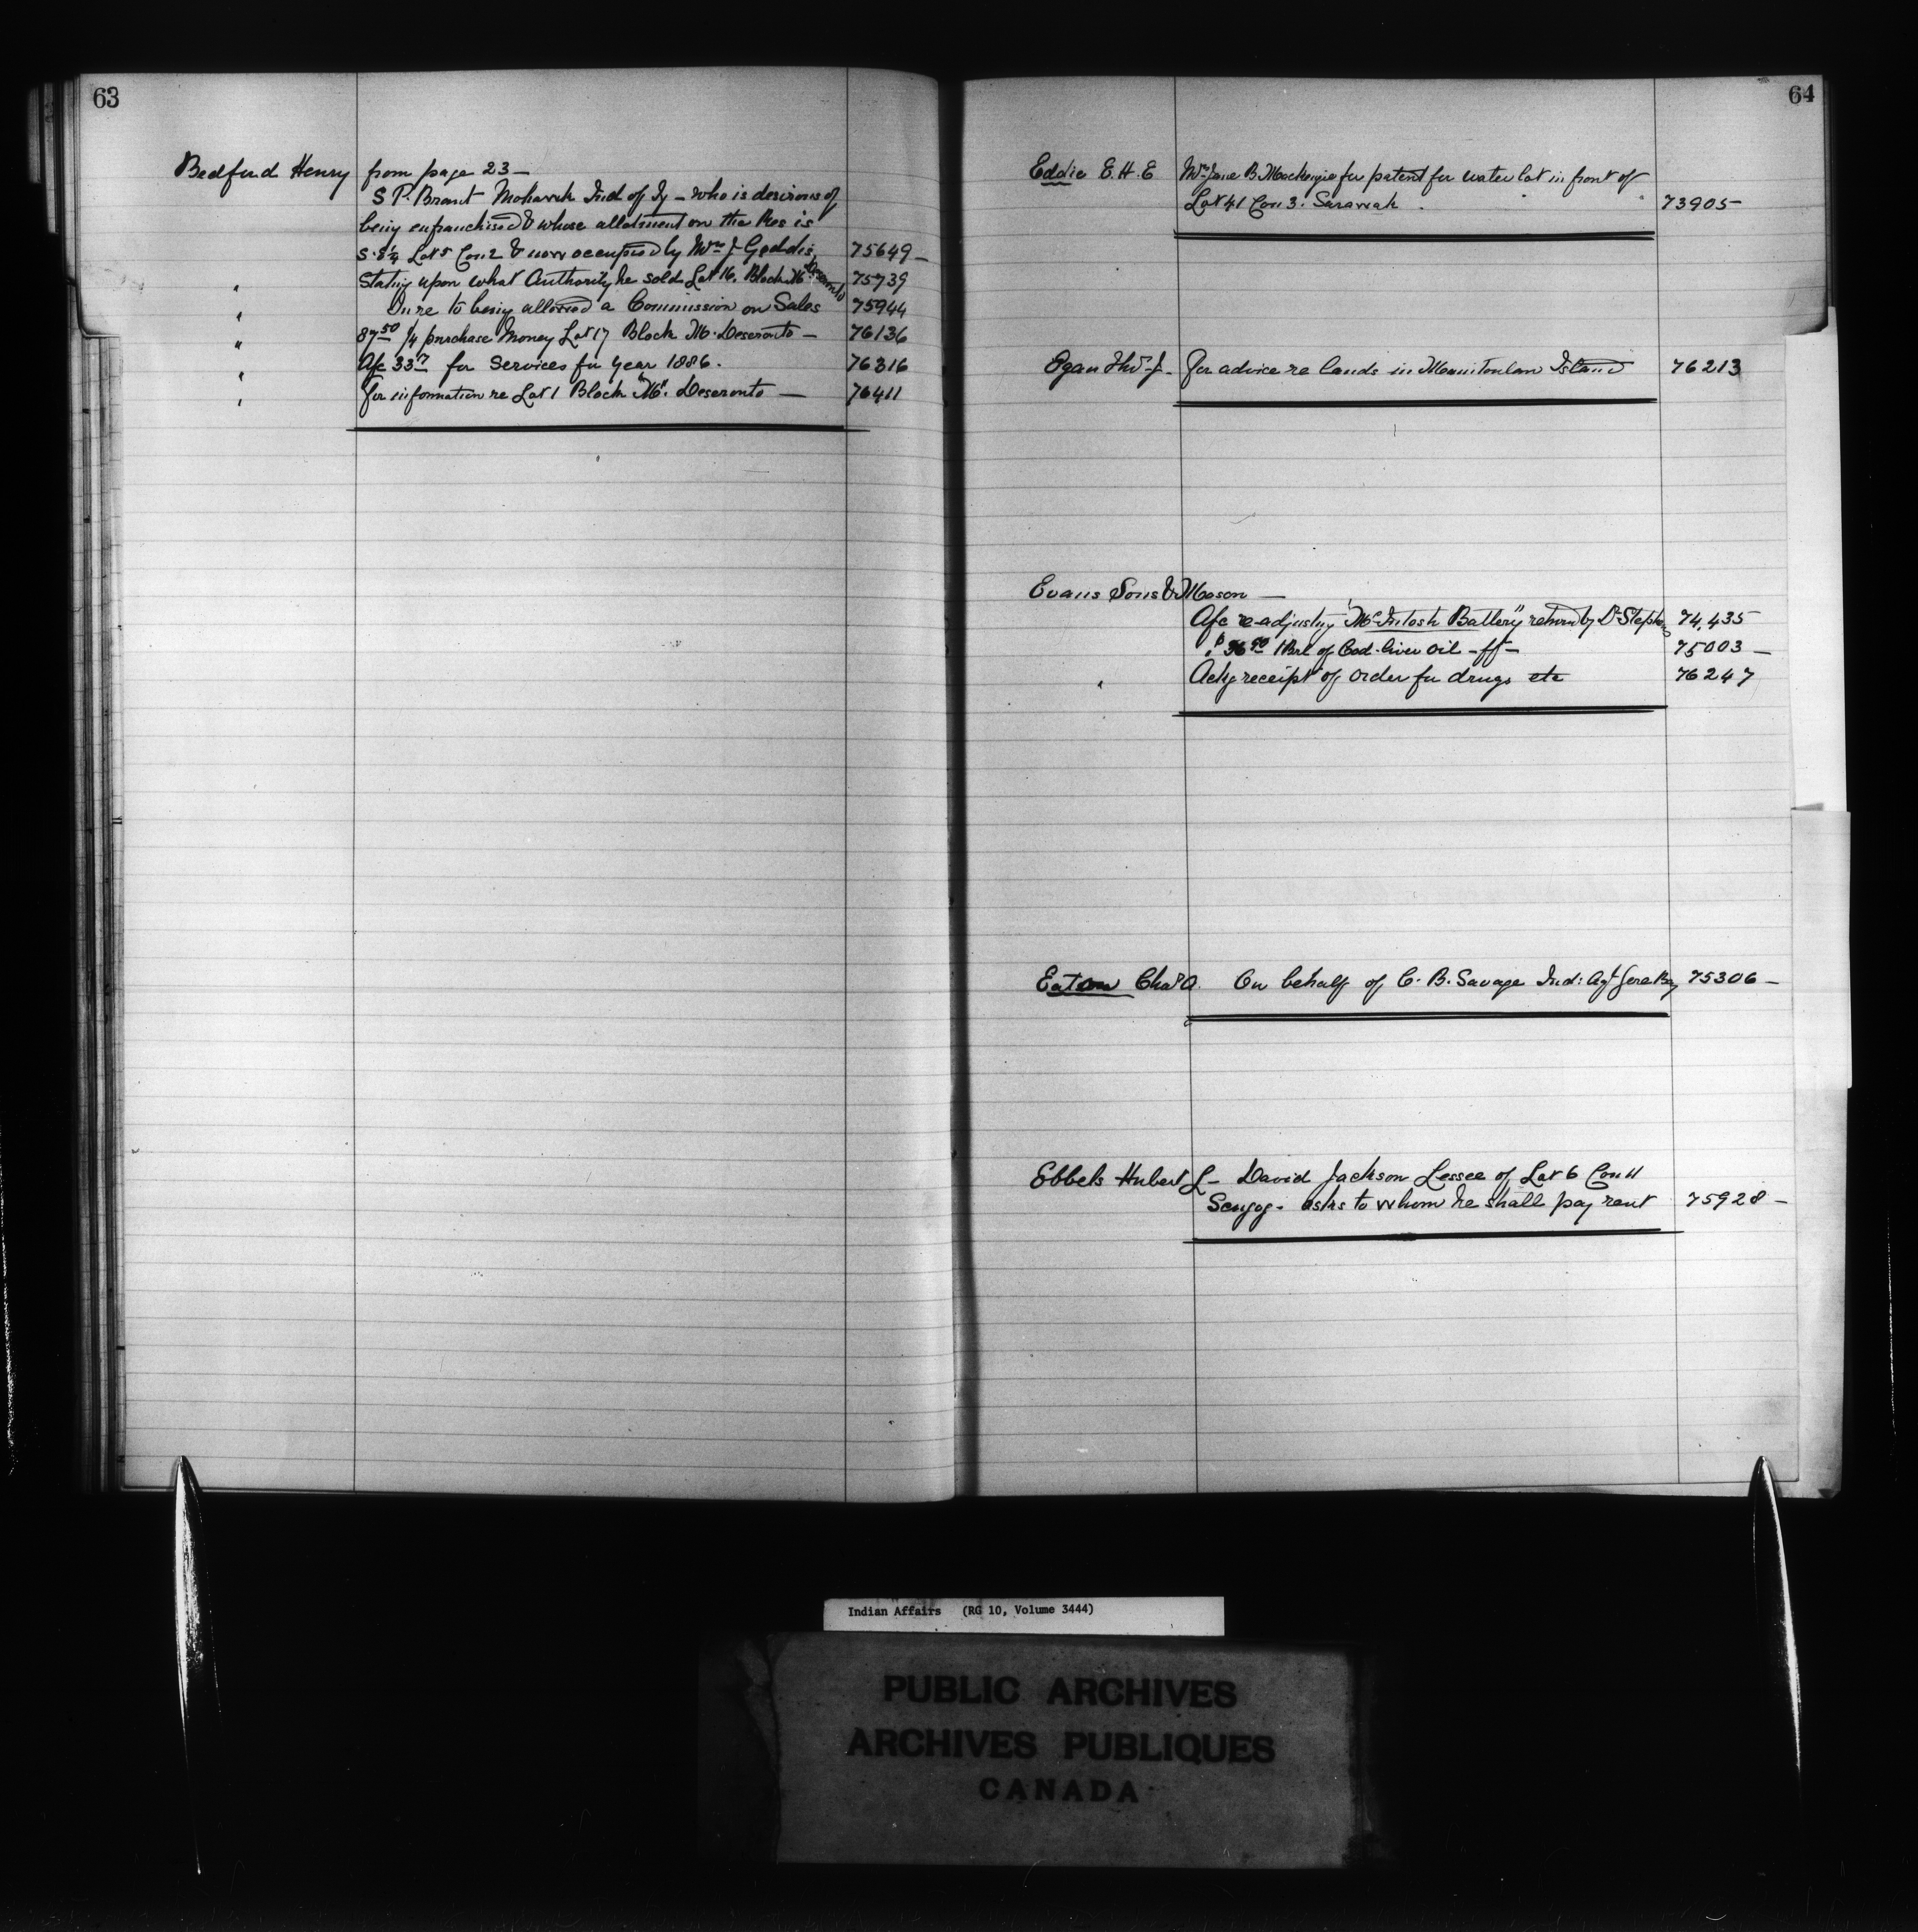 63
Bedford Henry from page 23 —
S P. Brant Mohawk Ind of Ty — who is desirous of
being enfranchised & whose allotment on the Res is
S. E ¼ Lot 5 Con 2 & now occupied by Mrs J Geddis, 75649 —
" Stating upon what Authority he sold Lot 16. Block "M" Deseronto 75739
" In re to being allowed a Commission on Sales 75944
" 87 50 ¼ purchase Money Lot 17 Block M. Deseronto — 76136
" A/c 33 for Services for Year 1886. 76316
" For information re Lot 1 Block "M". Deseronto — 76411
64
Eddie E. H. E Mrs Jane B. Mackenzie for patent for water lot in front of
Lot 41 Con 3. Sarawak. 73905 —
Egan Thos J. For advice re lands in Manitoulin Island 76213
Evans Sons & Mason —
A/c re-adjusting "McIntosh Battery" returnd by Dr Stephens 74,435
" $36 1 Brl of Cod-liver oil — ff — 75003 —
" Ackg receipt of order for drugs etc 76247
Eaton Chas A. On behalf of C. B. Savage Ind: Agt Gore Bay 75306 —
Ebbels Hubert L — David Jackson Lessee of Lot 6 Con 11
Scugog. asks to whom he shall pay rent 75928 —
Indian Affairs (RG 10, Volume 3444)
PUBLIC ARCHIVES
ARCHIVES PUBLIQUES
CANADA